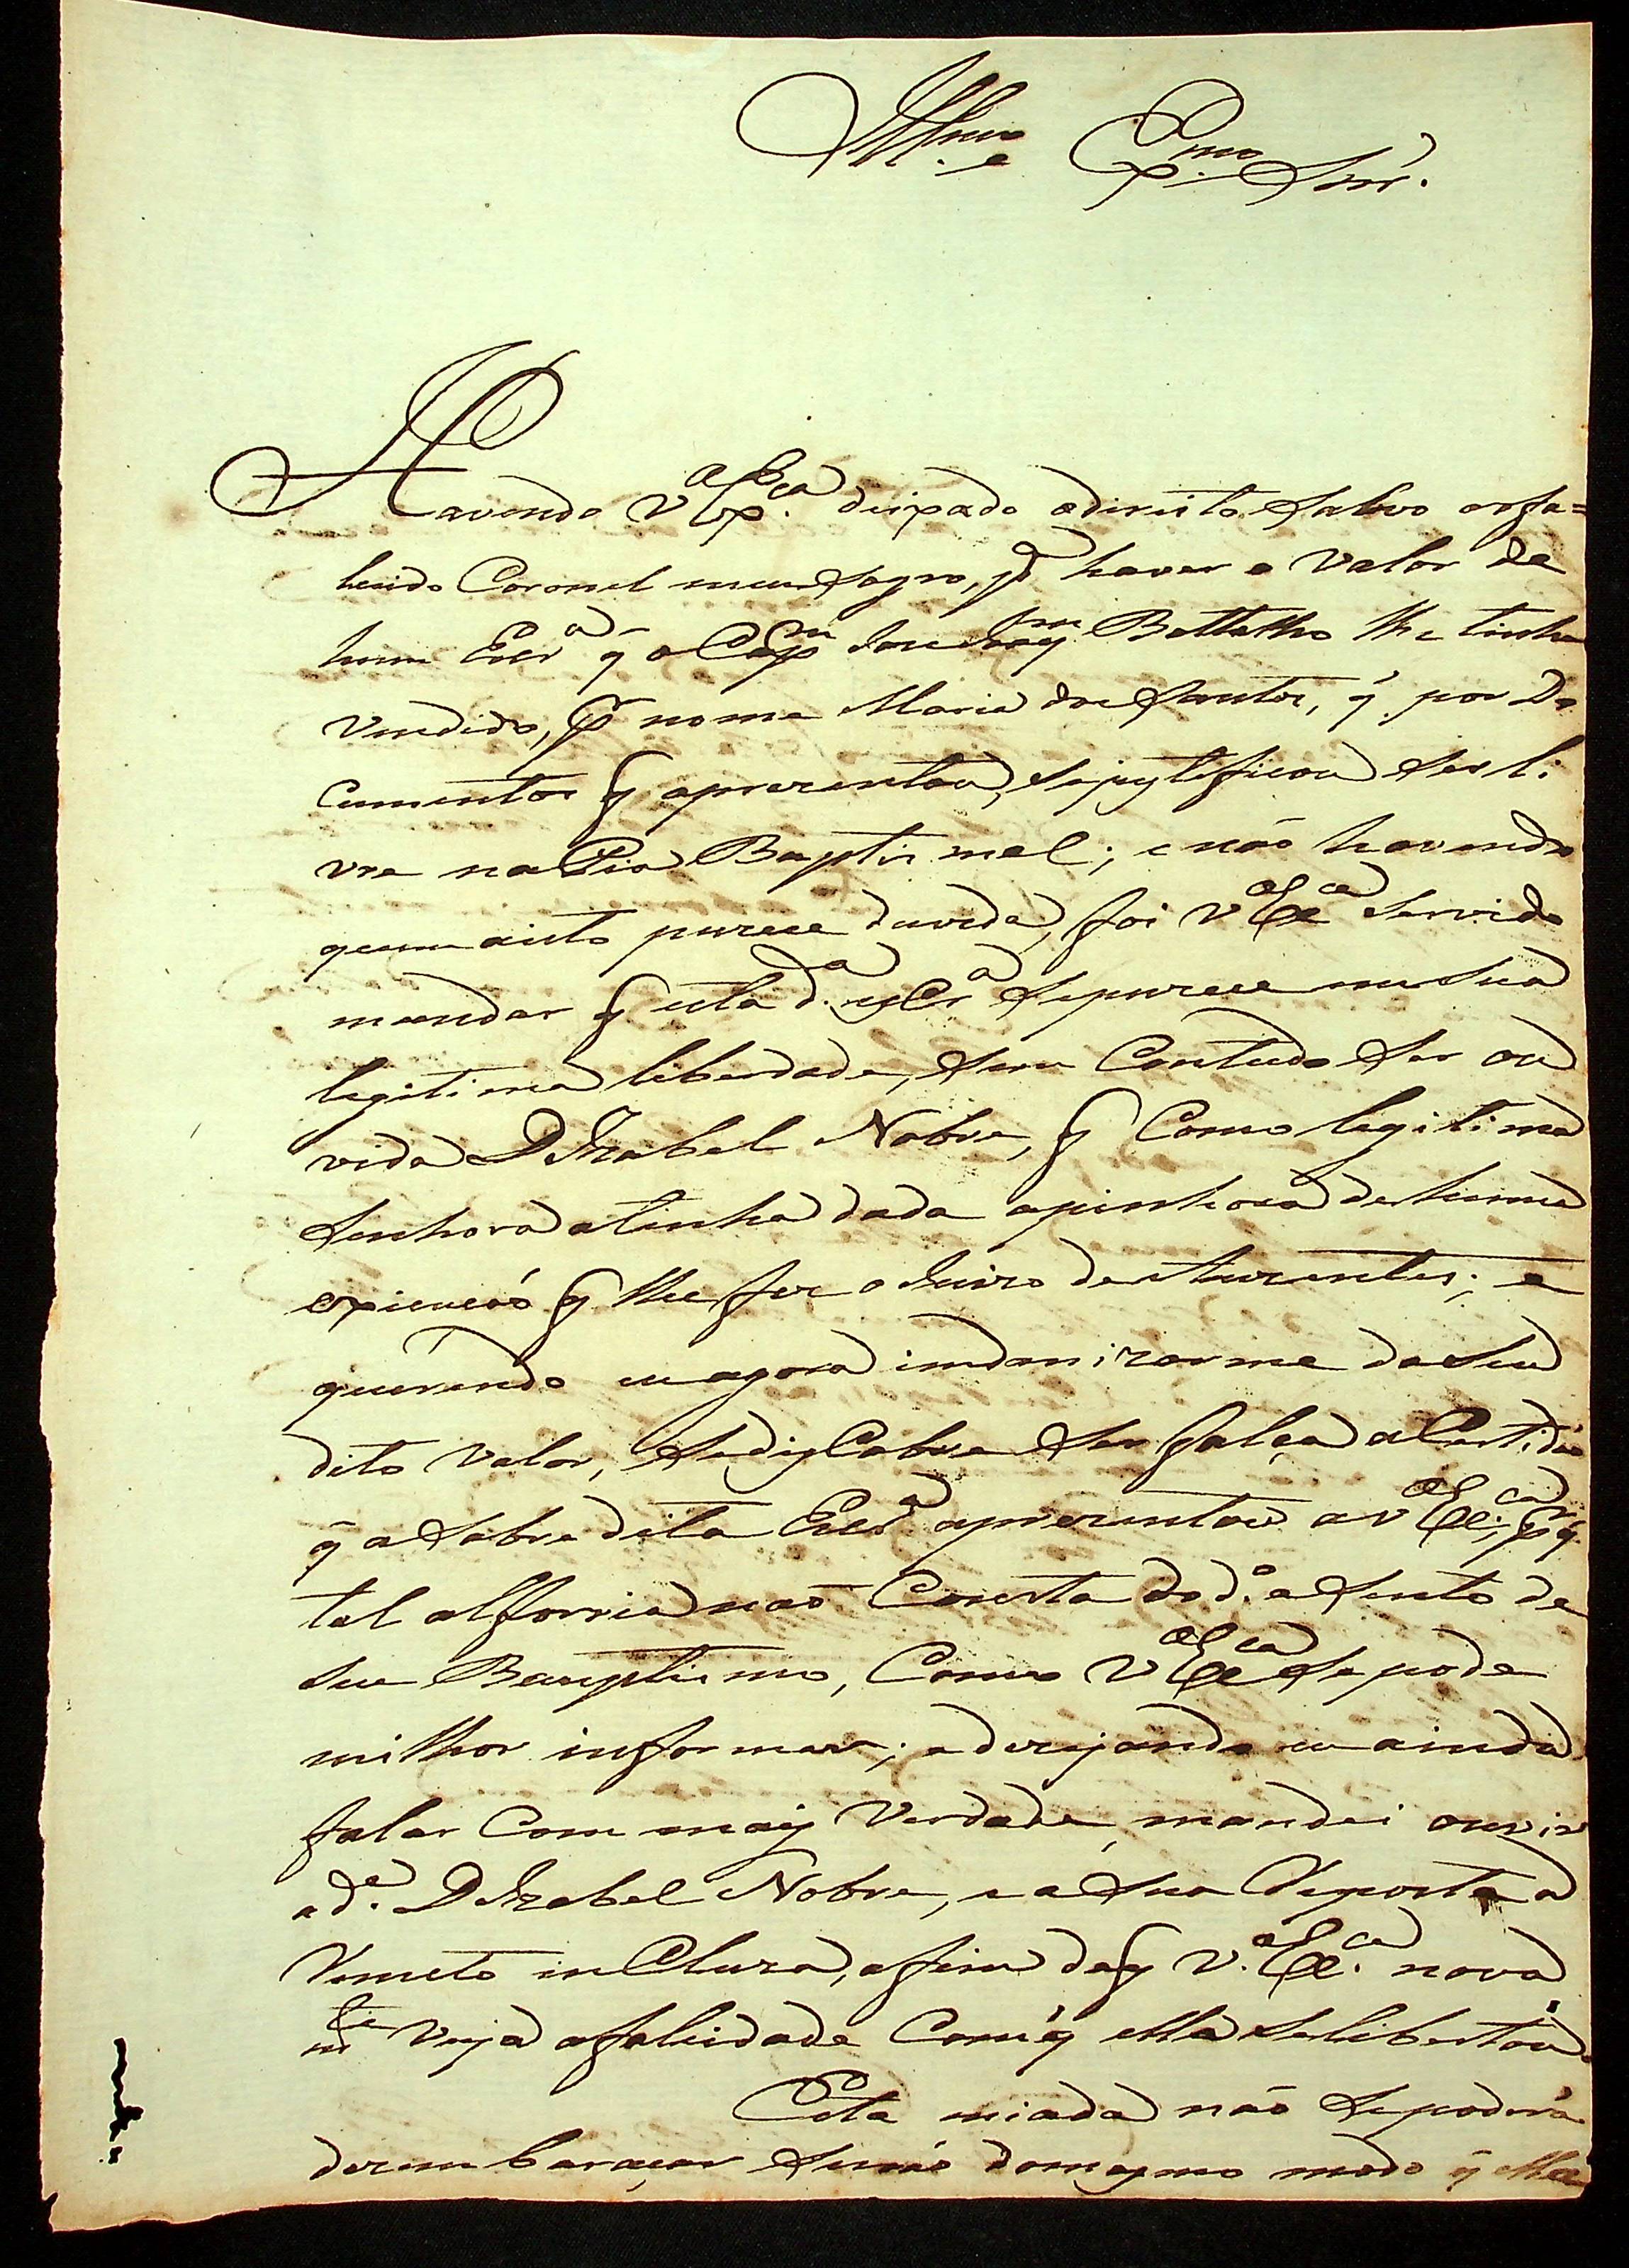 Illmo e Exmo Snr.
Havendo V.ª Ex.ca deixado o direito salvo o fa=
lecido Coronel meu sogro, pª haver o valor de
huma Escrª q̃ o Capm José Joaqm Bottelho lhe tinha
vendido, pr nome Maria dos Santos, q̃ por Do
cumentos q̃ aprezentou, se justificou ser li
vre na Pia Baptismal; e não havendo
quem a isto puzece duvida, foi V.ª Exca servido
mandar q̃ esta d.ª escrª se puzece em sua
legitima liberdade, sem Contudo ser ou
vida D. Izabel Nobre, q̃ Como legitima
senhora a tinha dada a pinhora de huma
expicucaõ q̃ lhe fez o Juizo de Auzentes; e
querendo eu agora indenizarme do seu
dito valor, se discobre ser falça a Certidaõ
q̃ a sobredita Escrª aprezentou a V.ª Ex.ca, pr q̃
tal alforria naõ Consta do d.º asento de
seu Bauptismo, Como V.ª Exca se pode
milhor informar; e dezejando eu ainda
falar Com mais verdade, mandei ouvir
a d.ª D. Izabel Nobre, e a sua Resposta a
Remeto incluza, a fim de q̃ V.ª Ex.ca nova
mte veja a falcidade Com q̃ ella se libertou.
Esta miada não se poderá
dezembaraçar senaõ do mesmo modo q̃ ella